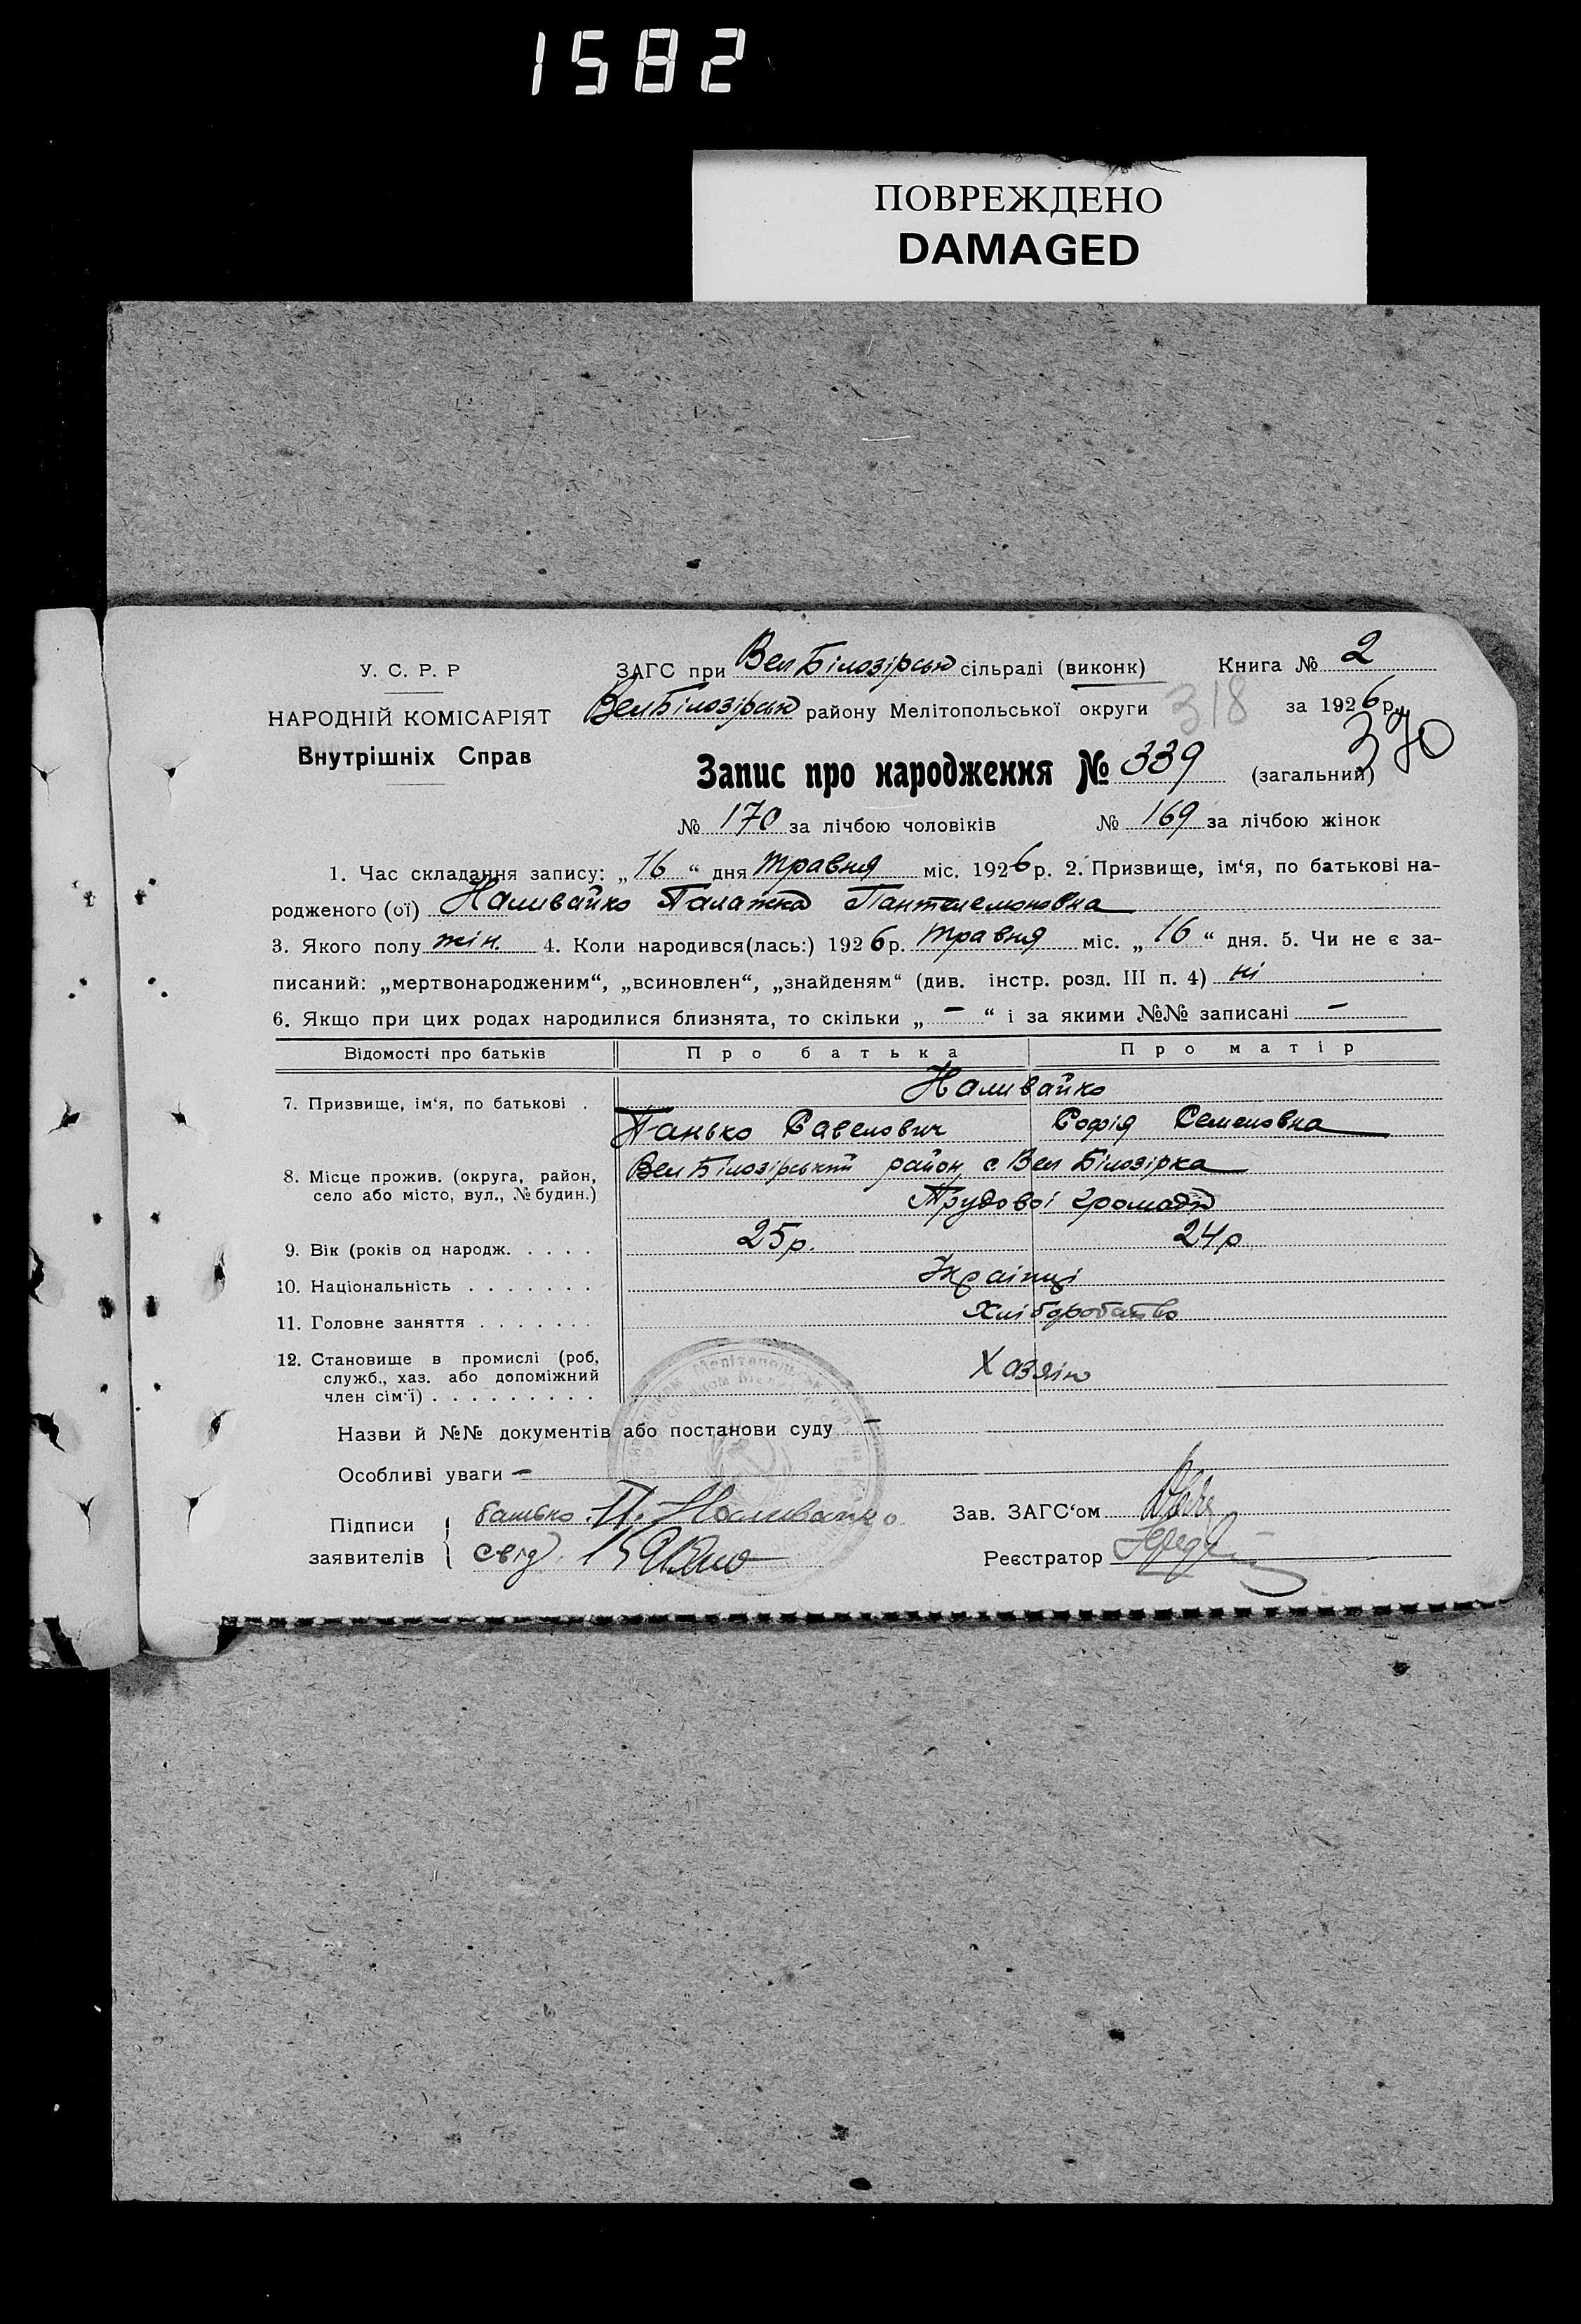 1582
ПОВРЕЖДЕНО
DAMAGED
У. С. Р. Р
НАРОДНІЙ КОМІСАРІЯТ
Внутрішніх Справ
ЗАГС при Вел Білозірськ сільраді (виконк) Книга № 2
Вел Білозірськ району Мелітопольської округи 318 за 1926 р.
370
Запис про народження № 339 (загальний)
№ 170 за лічбою чоловіків № 169 за лічбою жінок
1. Час складання запису: „16“ дня травня міс. 1926 р. 2. Призвище, ім‘я, по батькові на-
родженого (ої) Наливайко Палажка Пантелемоновна
3. Якого полу жін. 4. Коли народився(лась:) 1926 р. травня міс. „16“ дня. 5. Чи не є за-
писаний: „мертвонародженим“, „всиновлен“, „знайденям“ (див. інстр. розд. III п. 4) ні
6. Якщо при цих родах народилися близнята, то скільки „ – “ і за якими №№ записані –
Відомості про батьків Про батька Про матір
7. Призвище, ім‘я, по батькові . Наливайко
Панько Савелович Софія Семеновна
8. Місце прожив. (округа, район, село або місто, вул., № будин.) Вел Білозірський район, с. Вел Білозірка
Трудової громади
9. Вік (років од народж. . . . . 25 р. 24 р
10. Національність . . . . . . . Українці
11. Головне заняття . . . . . . . Хліборобство
12. Становище в промислі (роб, служб., хаз. або допоміжний член сім‘ї) . . . . . . . . . Хазяін
Назви й №№ документів або постанови суду –
Особливі уваги –
Підписи заявителів { батько П. Наливайко Зав. ЗАГС‘ом
свід. Реєстратор